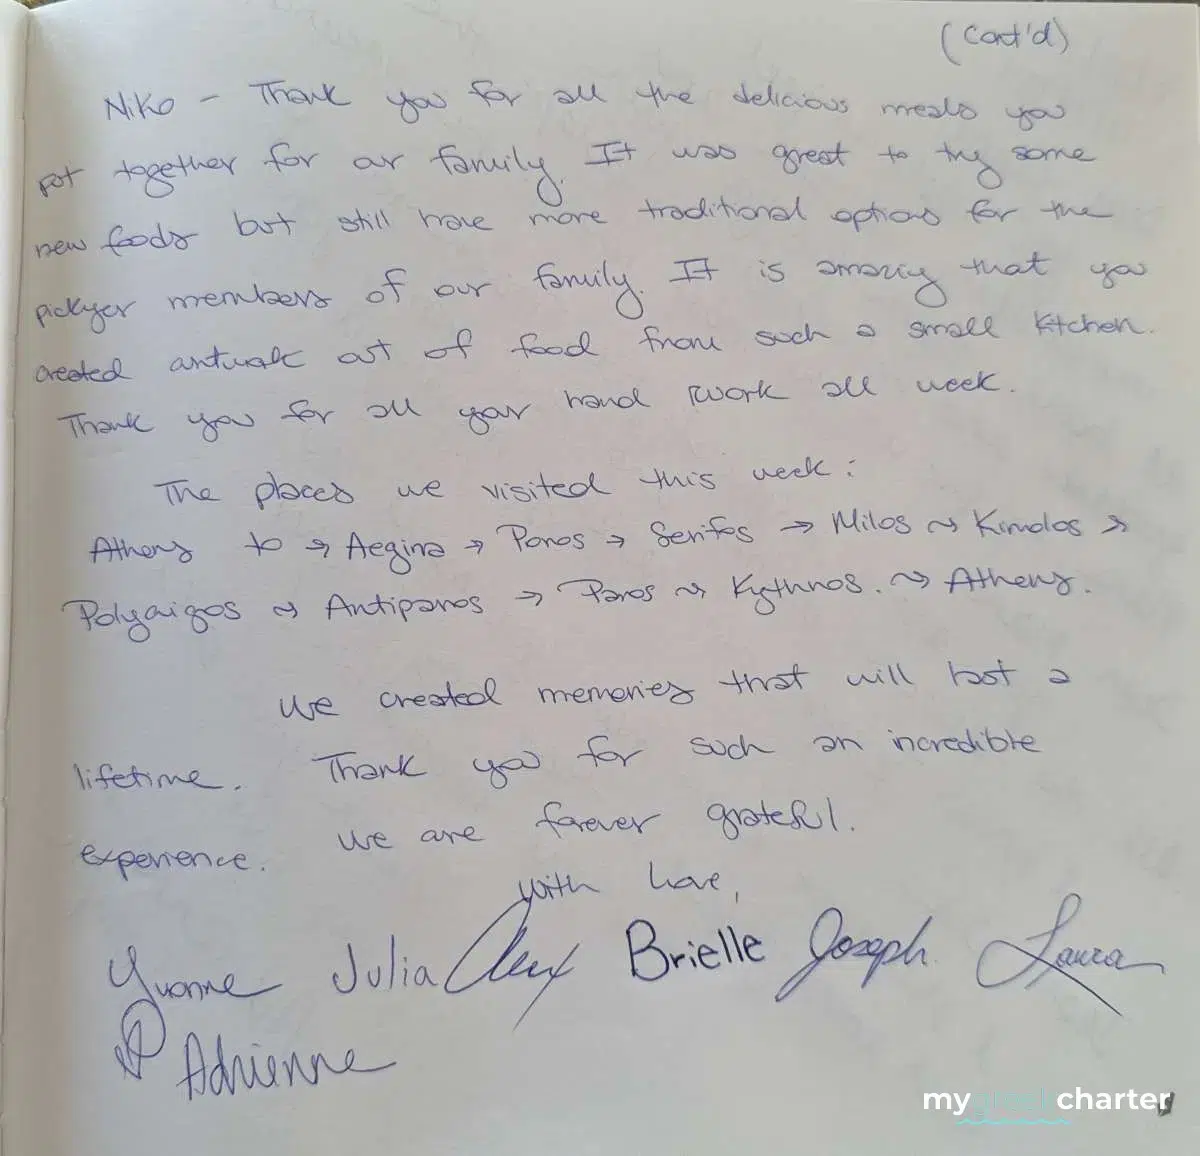 (Cont'd)
Niko - Thank you for all the delicious meals you
put together for our family. It was great to try some
new foods but still have more traditional options for the
pickyer members of our family. It is amazing that you
created artwork out of food from such a small kitchen.
Thank you for all your hard work all week.
The places we visited this week:
Athens to → Aegina → Poros → Serifos → Milos → Kimolos →
Polyaigos → Antiparos → Paros → Kythnos. → Athens.
We created memories that will last a
lifetime. Thank you for such an incredible
experience. We are forever grateful.
With love,
Yvonne Julia Alex Brielle Joseph Laura
Adrienne
mygreekcharter